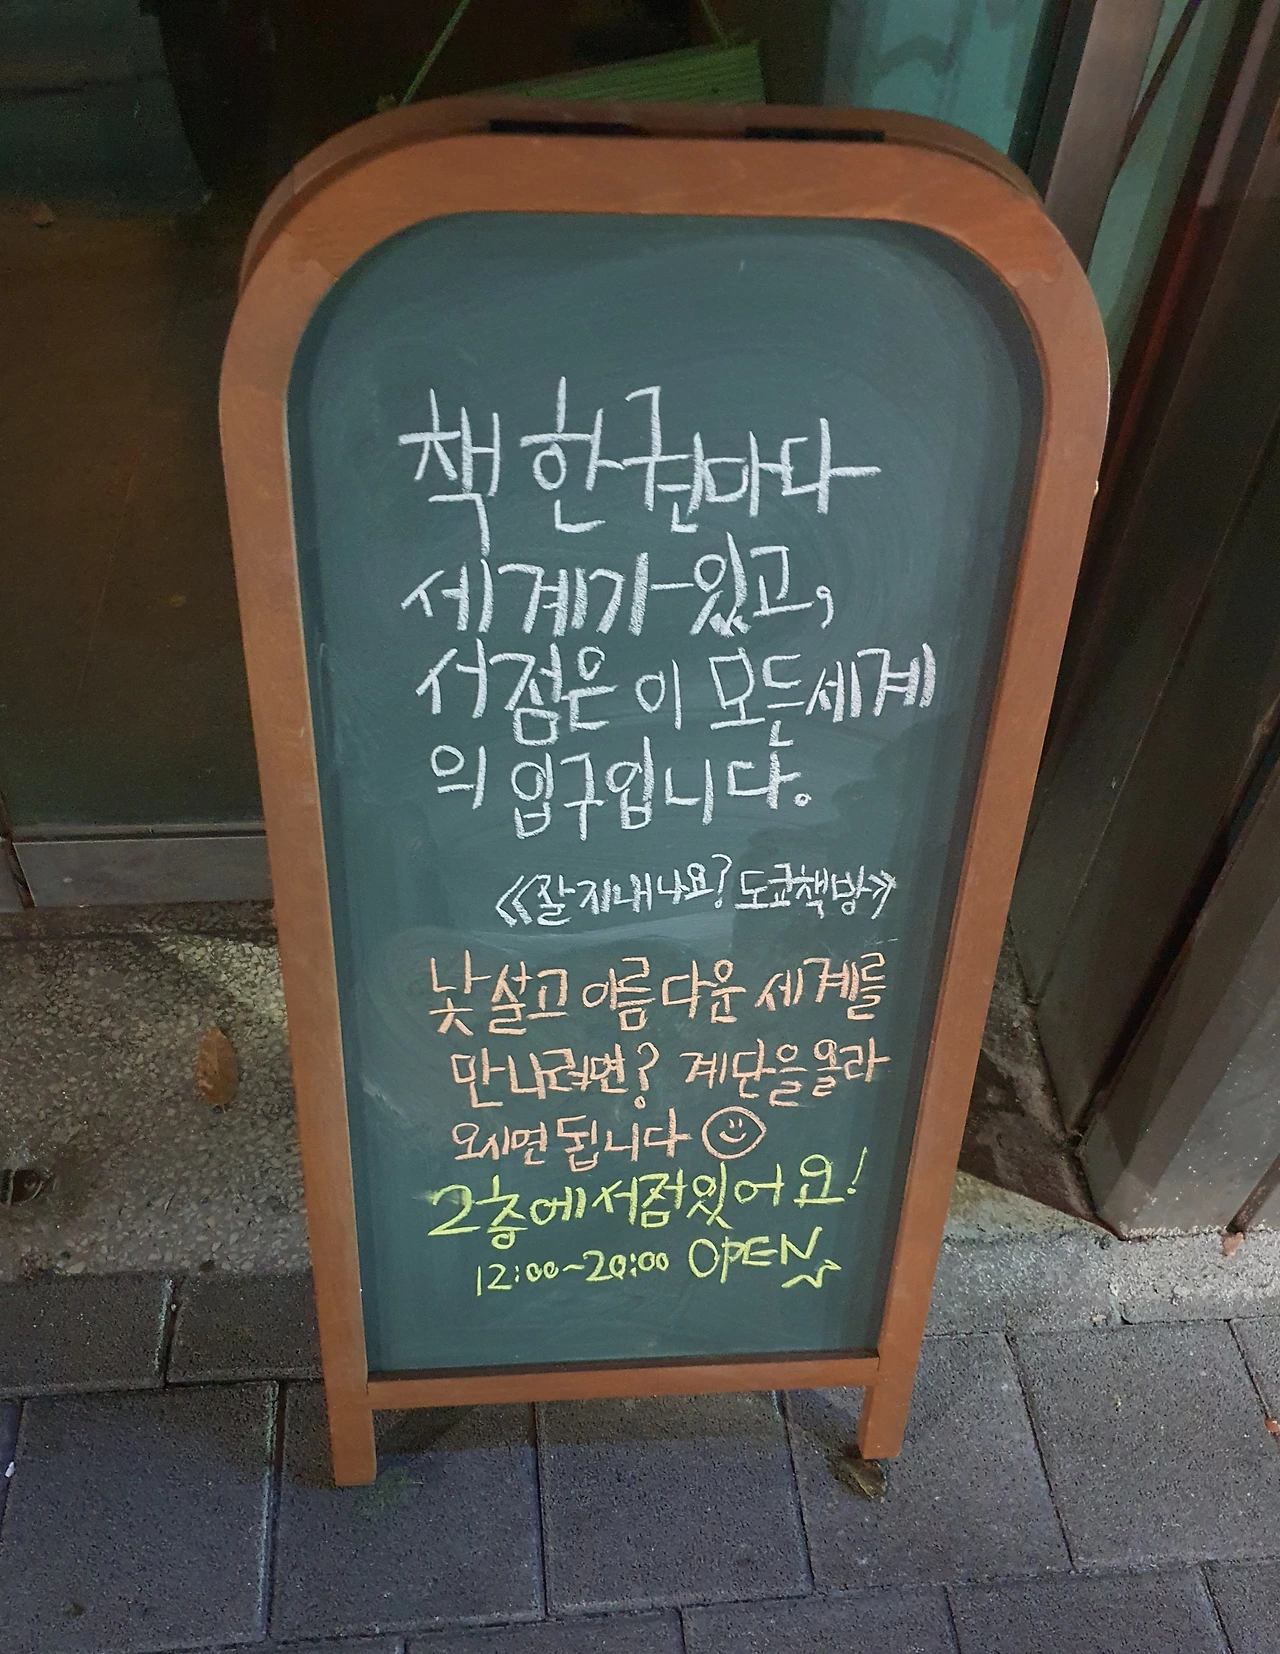 책 한 권마다
세계가 있고,
서점은 이 모든 세계
의 입구입니다.
《잘 지내나요? 도쿄책방》
낯설고 아름다운 세계를
만나려면? 계단을 올라
오시면 됩니다
2층에 서점있어요!
12:00~20:00 OPEN